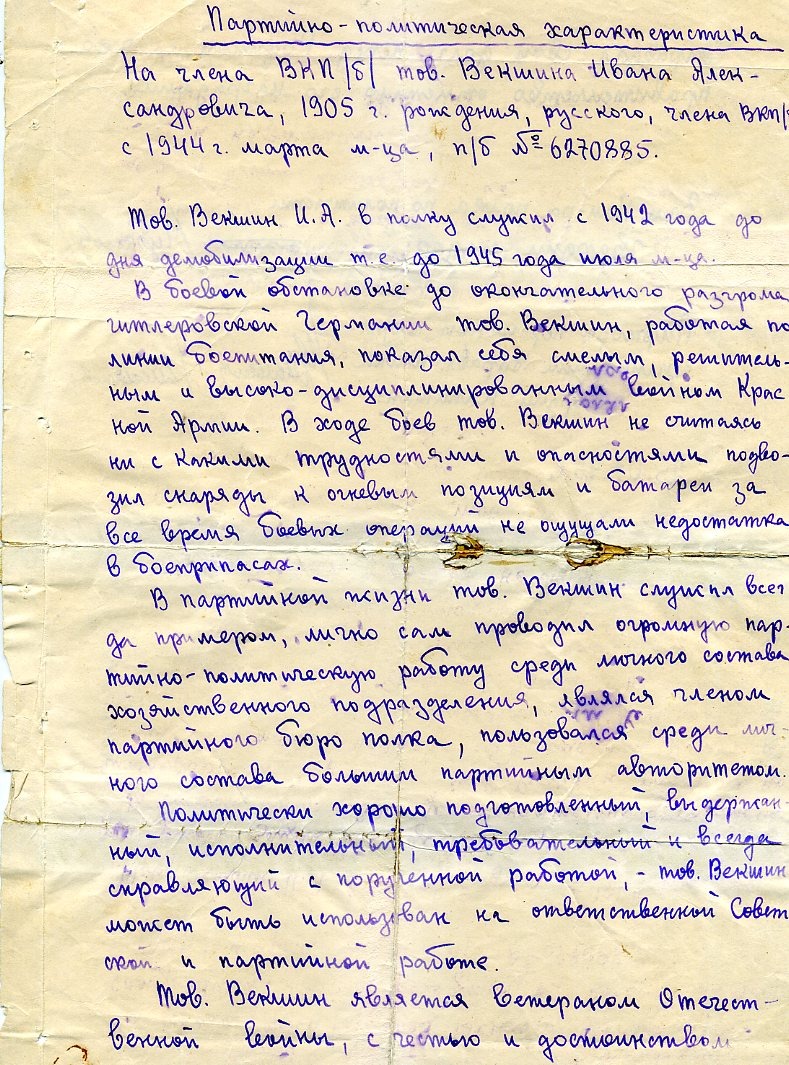 Партийно-политическая характеристика
На члена ВКП/б/ тов. Векшина Ивана Алек-
сандровича, 1905 г. рождения, русского, члена ВКП/
с 1944 г. марта м-ца, п/б № 6270885.
Тов. Векшин И.А. в полку служил с 1942 года до
дня демобилизации т.е. до 1945 года июля м-ца.
В боевой обстановке до окончательного разгрома
гитлеровской Германии тов. Векшин, работая по
линии боепитания, показал себя смелым, решитель-
ным и высоко-дисциплинированным войном Крас
ной Армии. В ходе боев тов. Векшин не считаясь
ни с какими трудностями и опасностями подво-
зил снаряды к огневым позициям и батареи за
все время боевых операций не ощущали недостатка
в боеприпасах.
В партийной жизни тов. Векшин служил всег
да примером, лично сам проводил огромную пар-
тийно-политическую работу среди личного состава
хозяйственного подразделения, являлся членом
партийного бюро полка, пользовался среди лич-
ного состава большим партийным авторитетом.
Политически хорошо подготовленный, выдержан-
ный, исполнительный, требовательный и всегда
справляющий с порученной работой, - тов. Векшин
может быть использован на ответственной Совет
ской и партийной работе.
Тов. Векшин является ветераном Отечест-
венной войны, с честью и достоинством